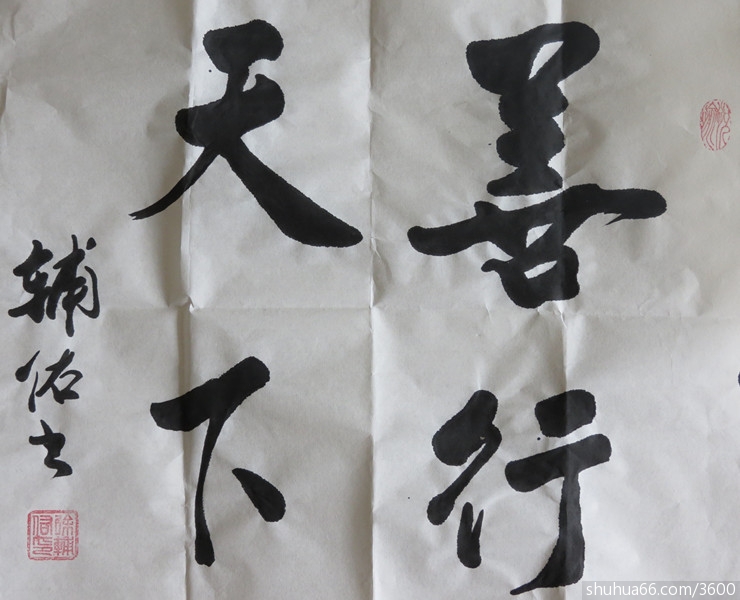 善行
天下
辅佑书
shuhua66.com/3600